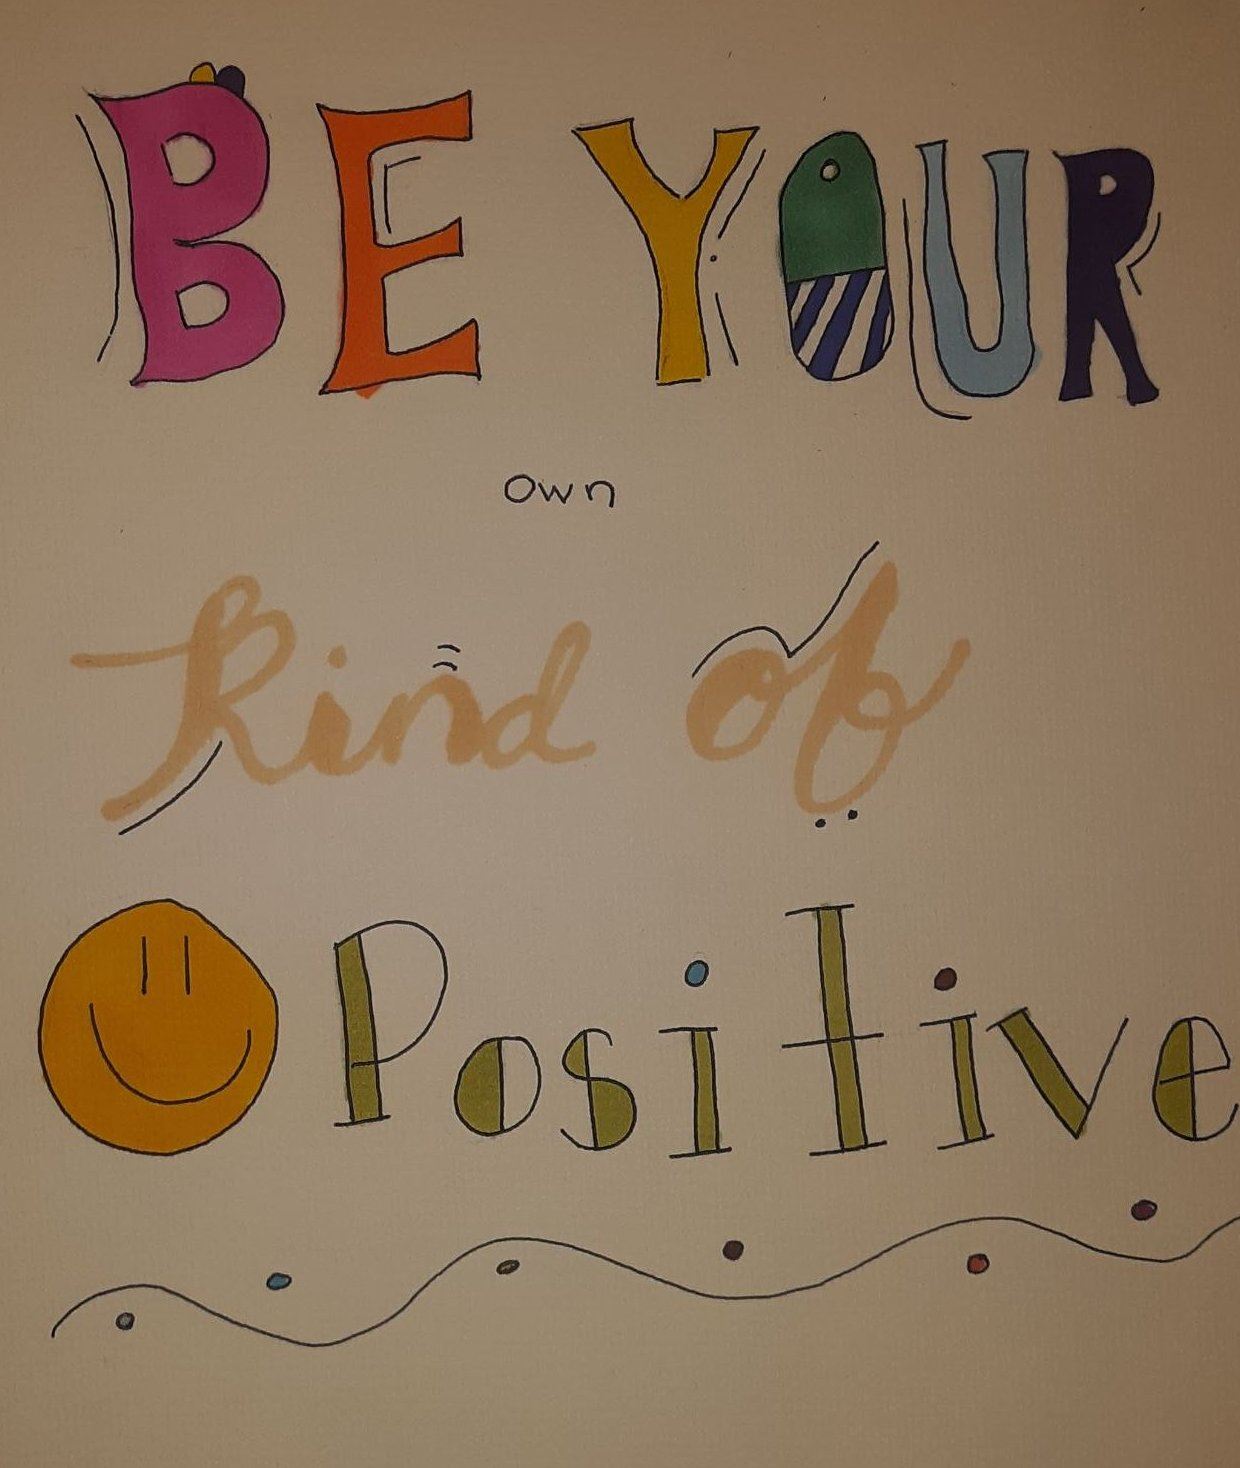 BE YOUR
own
kind of
Positive